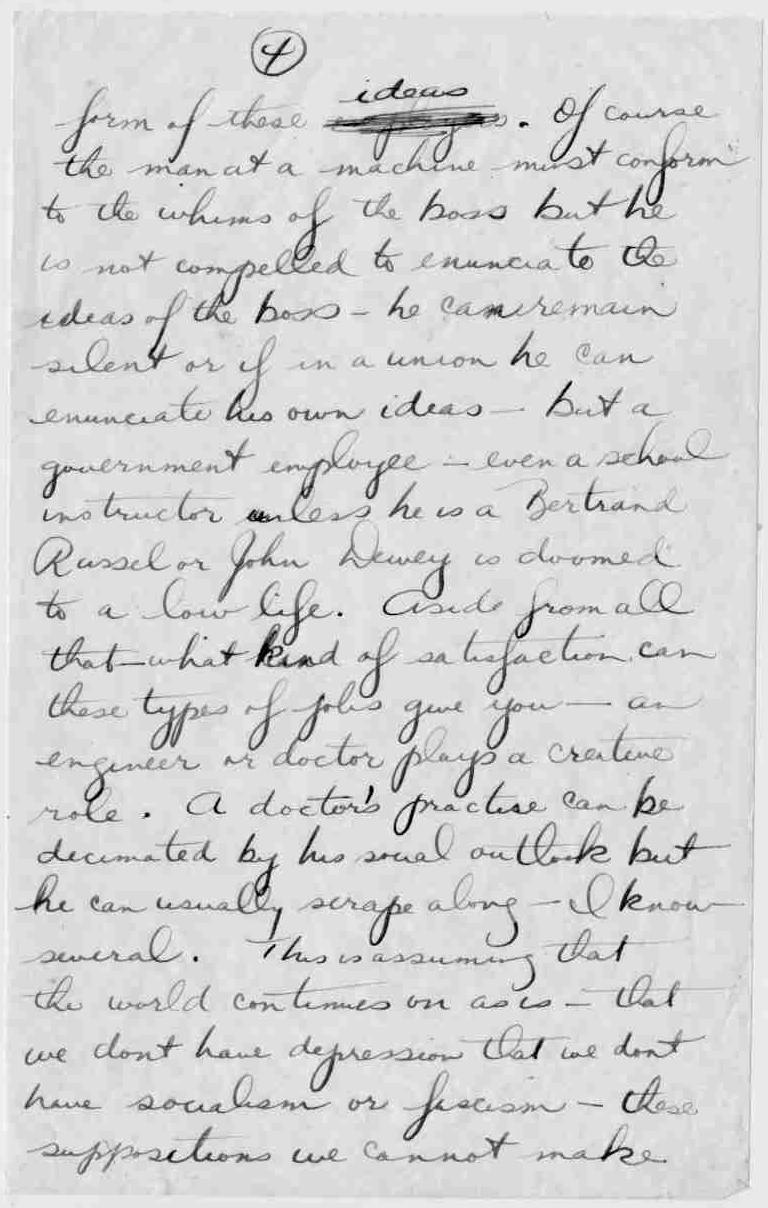 4
ideas
form of these . Of course
the man at a machine must conform
to the whims of the boss but he
is not compelled to enunciate the
ideas of the boss - he can remain
silent or if in a union he can
enunciate his own ideas - but a
government employee - even a school
instructor unless he is a Bertrand
Russel or John Dewey is doomed
to a low life. Aside from all
that - what kind of satisfaction can
these types of jobs give you - an
engineer or doctor plays a creative
role. A doctor's practise can be
decimated by his social outlook but
he can usually scrape along - I know
several. This is assuming that
the world continues on as is - that
we dont have depression that we dont
have socialism or fascism - these
suppositions we cannot make